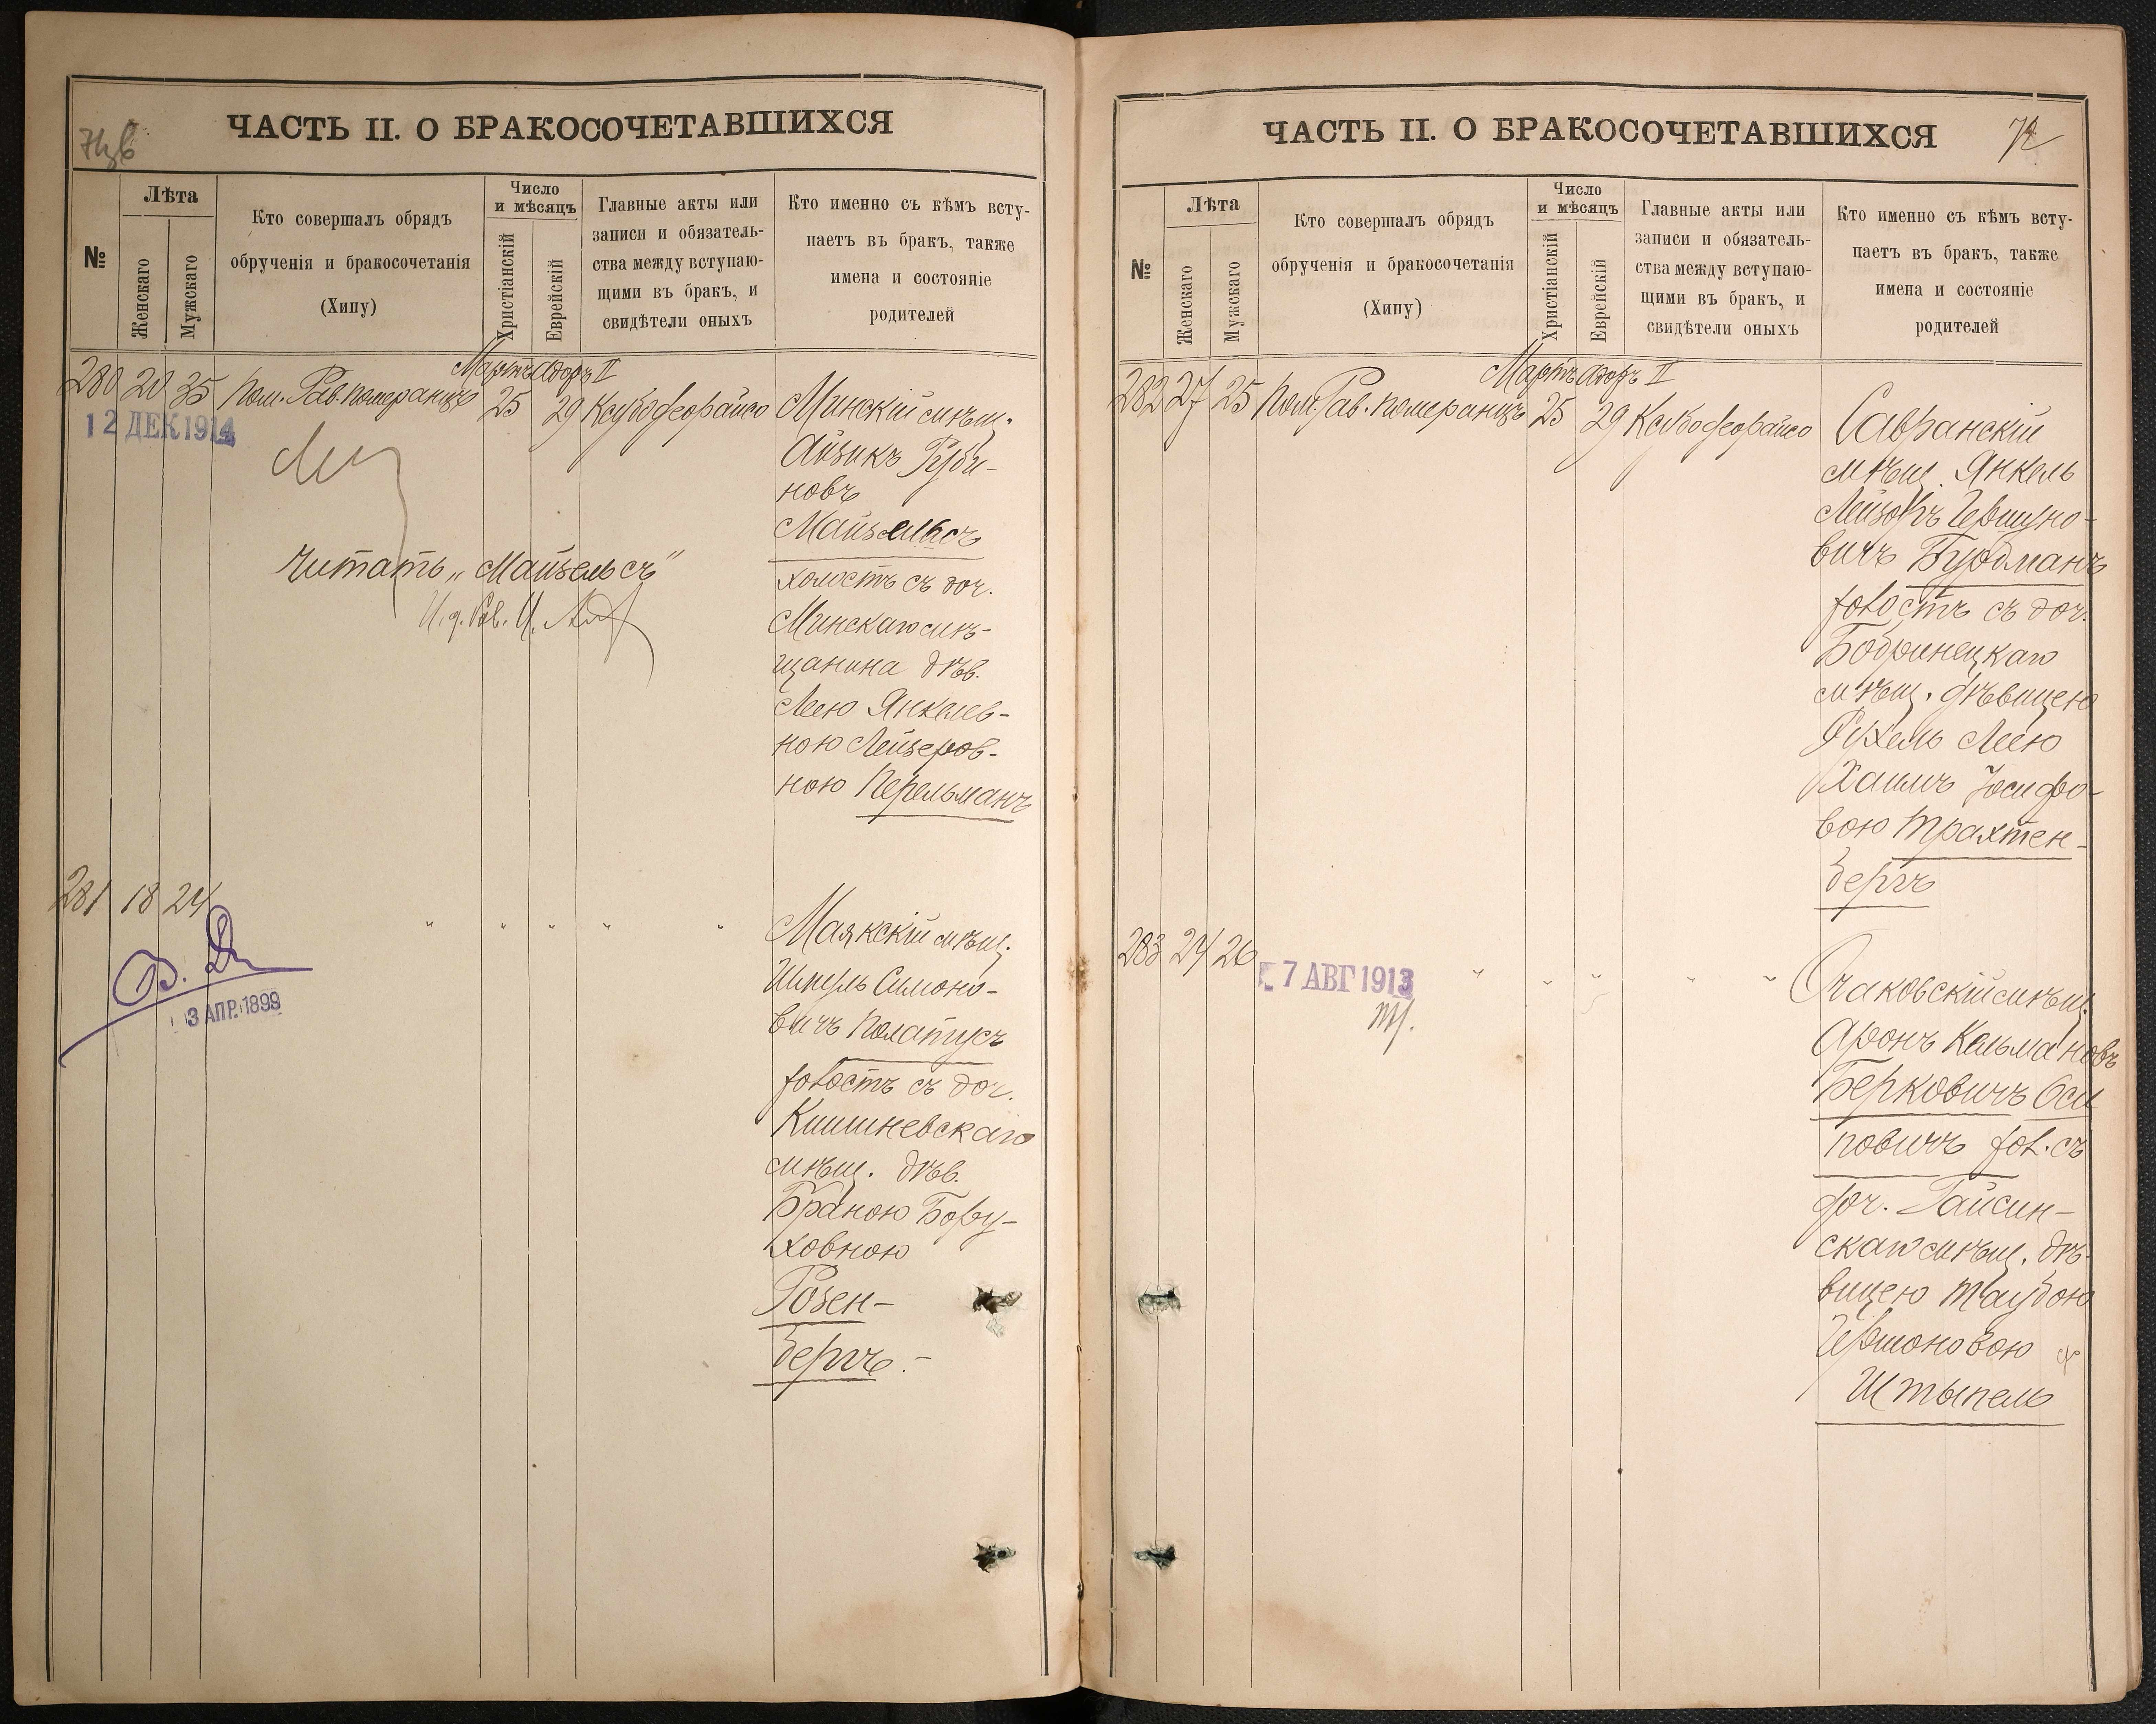 ЧАСТЬ II. О БРАКОСОЧЕТАВШИХСЯ
№
Лѣта
Женскаго
Мужскаго
Кто совершалъ обрядъ
обрученія и бракосочетанія
(Хипу)
Число
и мѣсяцъ
Христіанскій
Еврейскій
Главные акты или
записи и обязатель-
ства между вступаю-
щими въ бракъ, и
свидѣтели оныхъ
Кто именно съ кѣмъ всту-
паетъ въ бракъ, также
имена и состояніе
родителей
Мартъ Адоръ II
280 20 35 Пом. Рав. Померанцъ 25 29 Ксубо феорайсо
12 ДЕК 1914
Минскій мѣщ.
Айзикъ Руби-
новъ
Майзельсъ
холостъ съ доч.
Минскаго мѣ-
щанина дѣв.
Леею Янкелев-
ною Лейзеров-
ною Перельманъ
Читать „Майзельсъ"
И. д. Рав. И.
281 18 24 " " " " "
3 АПР. 1899
Маякскій мѣщ.
Шмуль Симоно-
вичъ Полатусъ
холостъ съ доч.
Кишиневскаго
мѣщ. дѣв.
Браною Бору-
ховною
Розен-
бергъ.-
ЧАСТЬ II. О БРАКОСОЧЕТАВШИХСЯ
72
№
Лѣта
Женскаго
Мужскаго
Кто совершалъ обрядъ
обрученія и бракосочетанія
(Хипу)
Число
и мѣсяцъ
Христіанскій
Еврейскій
Главные акты или
записи и обязатель-
ства между вступаю-
щими въ бракъ, и
свидѣтели оныхъ
Кто именно съ кѣмъ всту-
паетъ въ бракъ, также
имена и состояніе
родителей
Мартъ Адоръ II
282 27 25 Пом. Рав. Померанцъ 25 29 Ксубо феорайсо
Савранскій
мѣщ. Янкель
Лейзоръ Гершуно-
вичъ Бурдманъ
холостъ съ доч.
Бобринецкаго
мѣщ. дѣвицею
Рухель Леею
Хаимъ Іосифо-
вою Трахтен-
бергъ
283 24 26 " " " " "
7 АВГ 1913
Очаковскій мѣщ.
Аронъ Кельмановъ
Берковичъ Оси
повичъ хол. съ
доч. Гайсин-
скаго мѣщ. дѣ-
вицею Таубою
Гершоновою
Штыпель